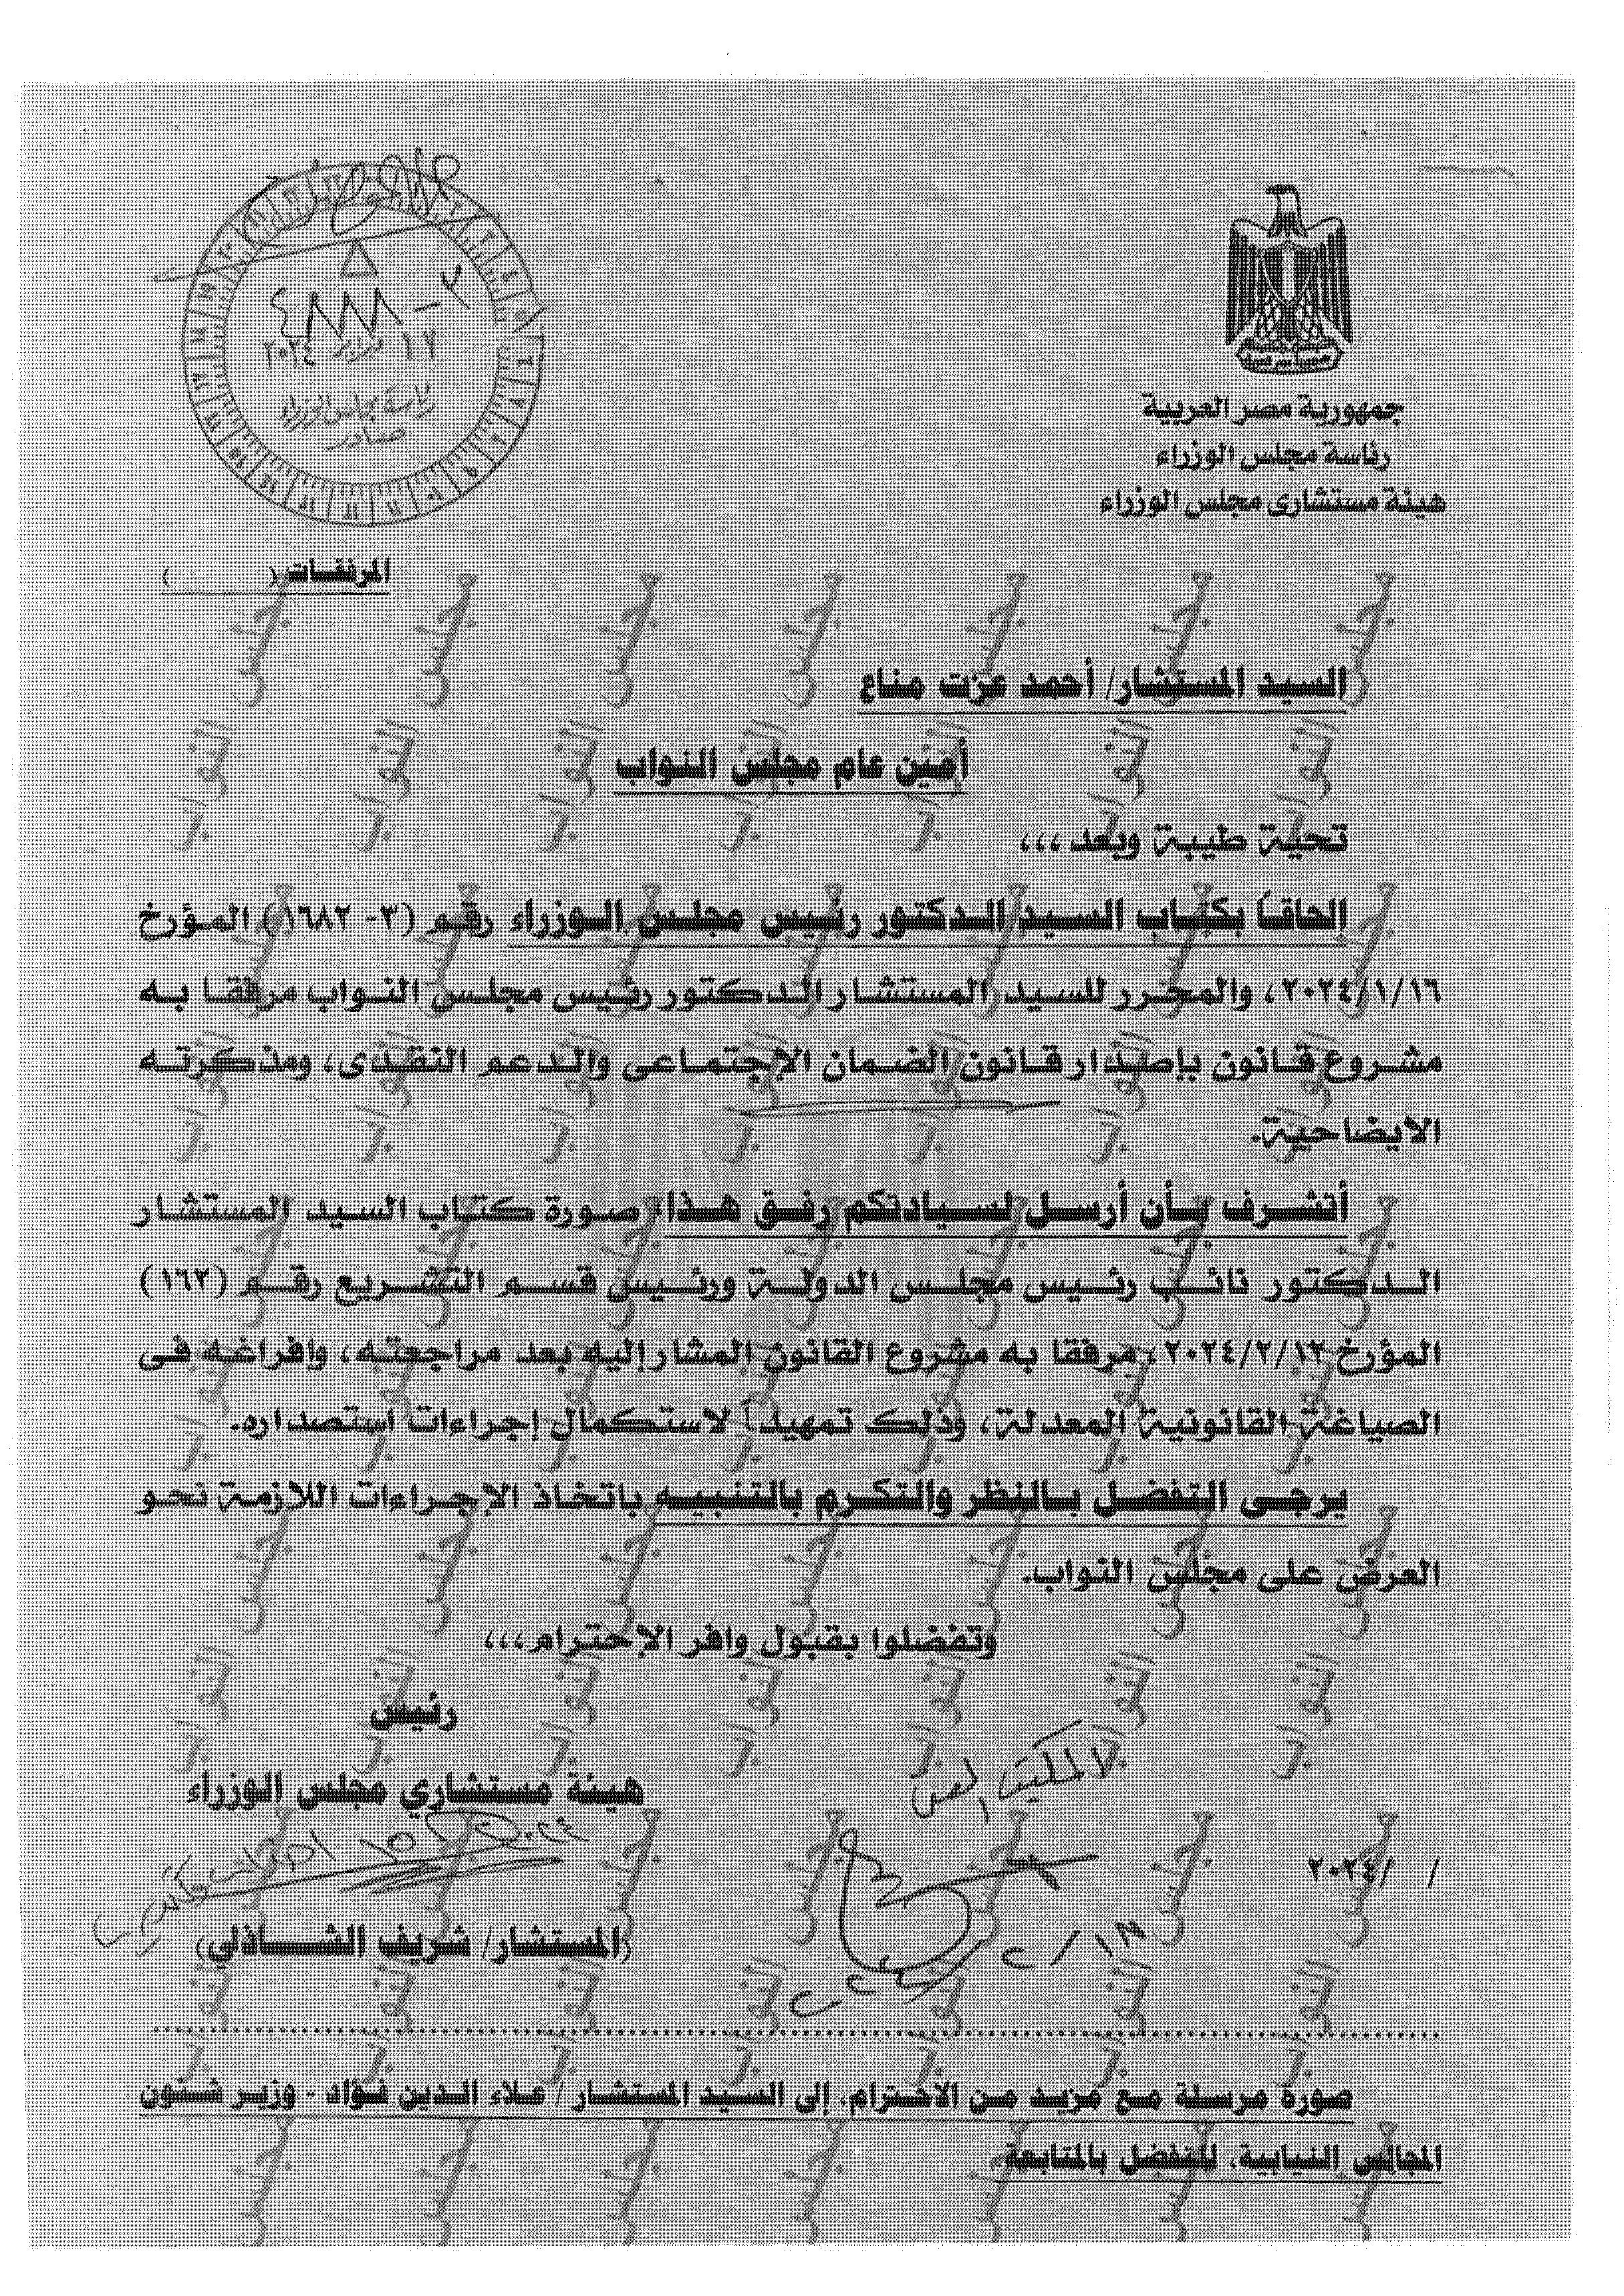 جمهورية مصر العربية
رئاسة مجلس الوزراء
هيئة مستشارى مجلس الوزراء
١٧ فبراير ٢٠٢٤
رئاسة مجلس الوزراء
صادر
المرفقات (          )
السيد المستشار/ أحمد عزت مناع
أمين عام مجلس النواب
تحية طيبة وبعد ،،،
الحاقاً بكتاب السيد الدكتور رئيس مجلس الوزراء رقم (٣- ١٦٨٢) المؤرخ
٢٠٢٤/١/١٦، والمحرر للسيد المستشار الدكتور رئيس مجلس النواب مرفقا به
مشروع قانون بإصدار قانون الضمان الإجتماعى والدعم النقدى، ومذكرته
الايضاحية.
أتشرف بأن أرسل لسيادتكم رفق هذا صورة كتاب السيد المستشار
الدكتور نائب رئيس مجلس الدولة ورئيس قسم التشريع رقم (١٦٣)
المؤرخ ٢٠٢٤/٢/١٣، مرفقا به مشروع القانون المشار إليه بعد مراجعته، وافراغه فى
الصياغة القانونية المعدلة، وذلك تمهيداً لاستكمال إجراءات استصداره.
يرجى التفضل بالنظر والتكرم بالتنبيه باتخاذ الإجراءات اللازمة نحو
العرض على مجلس النواب.
وتفضلوا بقبول وافر الإحترام،،،
رئيس
هيئة مستشاري مجلس الوزراء
/    /٢٠٢٤
(المستشار/ شريف الشاذلي)
صورة مرسلة مع مزيد من الاحترام، إلى السيد المستشار / علاء الدين فؤاد - وزير شئون
المجالس النيابية، للتفضل بالمتابعة